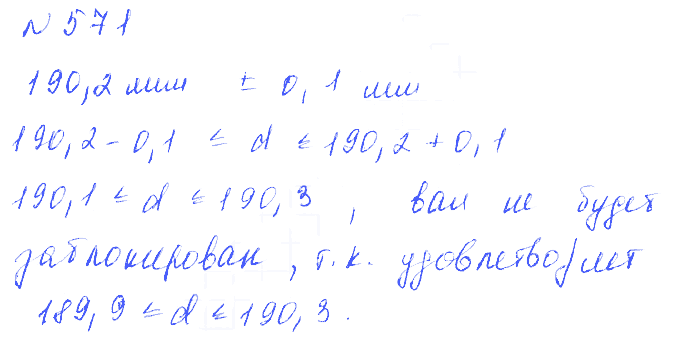 N 571
190,2 мм ± 0,1 мм
190,2 - 0,1 ≤ d ≤ 190,2 + 0,1
190,1 ≤ d ≤ 190,3 , вал не будет
заблокирован, т.к. удовлетворяет
189,9 ≤ d ≤ 190,3.